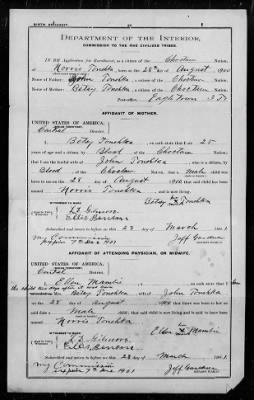 BIRTH AFFIDAVIT.
DEPARTMENT OF THE INTERIOR,
COMMISSION TO THE FIVE CIVILIZED TRIBES.
IN RE Application for Enrollment, as a citizen of the Choctaw Nation,
of Norris Tonehka, born on the 28" day of August, 1900
Name of Father: John Tonehka a citizen of the Choctaw Nation.
Name of Mother: Betsy Tonehka a citizen of the Choctaw Nation.
Postoffice Eagletown I.T.
AFFIDAVIT OF MOTHER.
UNITED STATES OF AMERICA,
INDIAN TERRITORY,
Central District.
I, Betsy Tonehka, on oath state that I am 25
years of age and a citizen by Blood, of the Choctaw Nation;
that I am the lawful wife of John Tonehka, who is a citizen, by
Blood of the Choctaw Nation; that a male child was
born to me on 28 day of August 1900, that said child has been
named Norris Tonehka, and is now living.
Betsy x Tonehka
WITNESSES TO MARK:
Subscribed and sworn to before me this 23 day of March 1901.
My Commission
Jeff Gardner
AFFIDAVIT OF ATTENDING PHYSICIAN, OR MIDWIFE.
UNITED STATES OF AMERICA,
INDIAN TERRITORY,
Central District.
Betsy Tonehka, wife of John Tonehka
on the 28 day of August, 1900 that there was born to her on
said date a male child; that said child is now living and is said to have been
named Norris Tonehka
WITNESSES TO MARK:
Subscribed and sworn to before me this 23 day of March 1901.
My Commission
Jeff Gardner